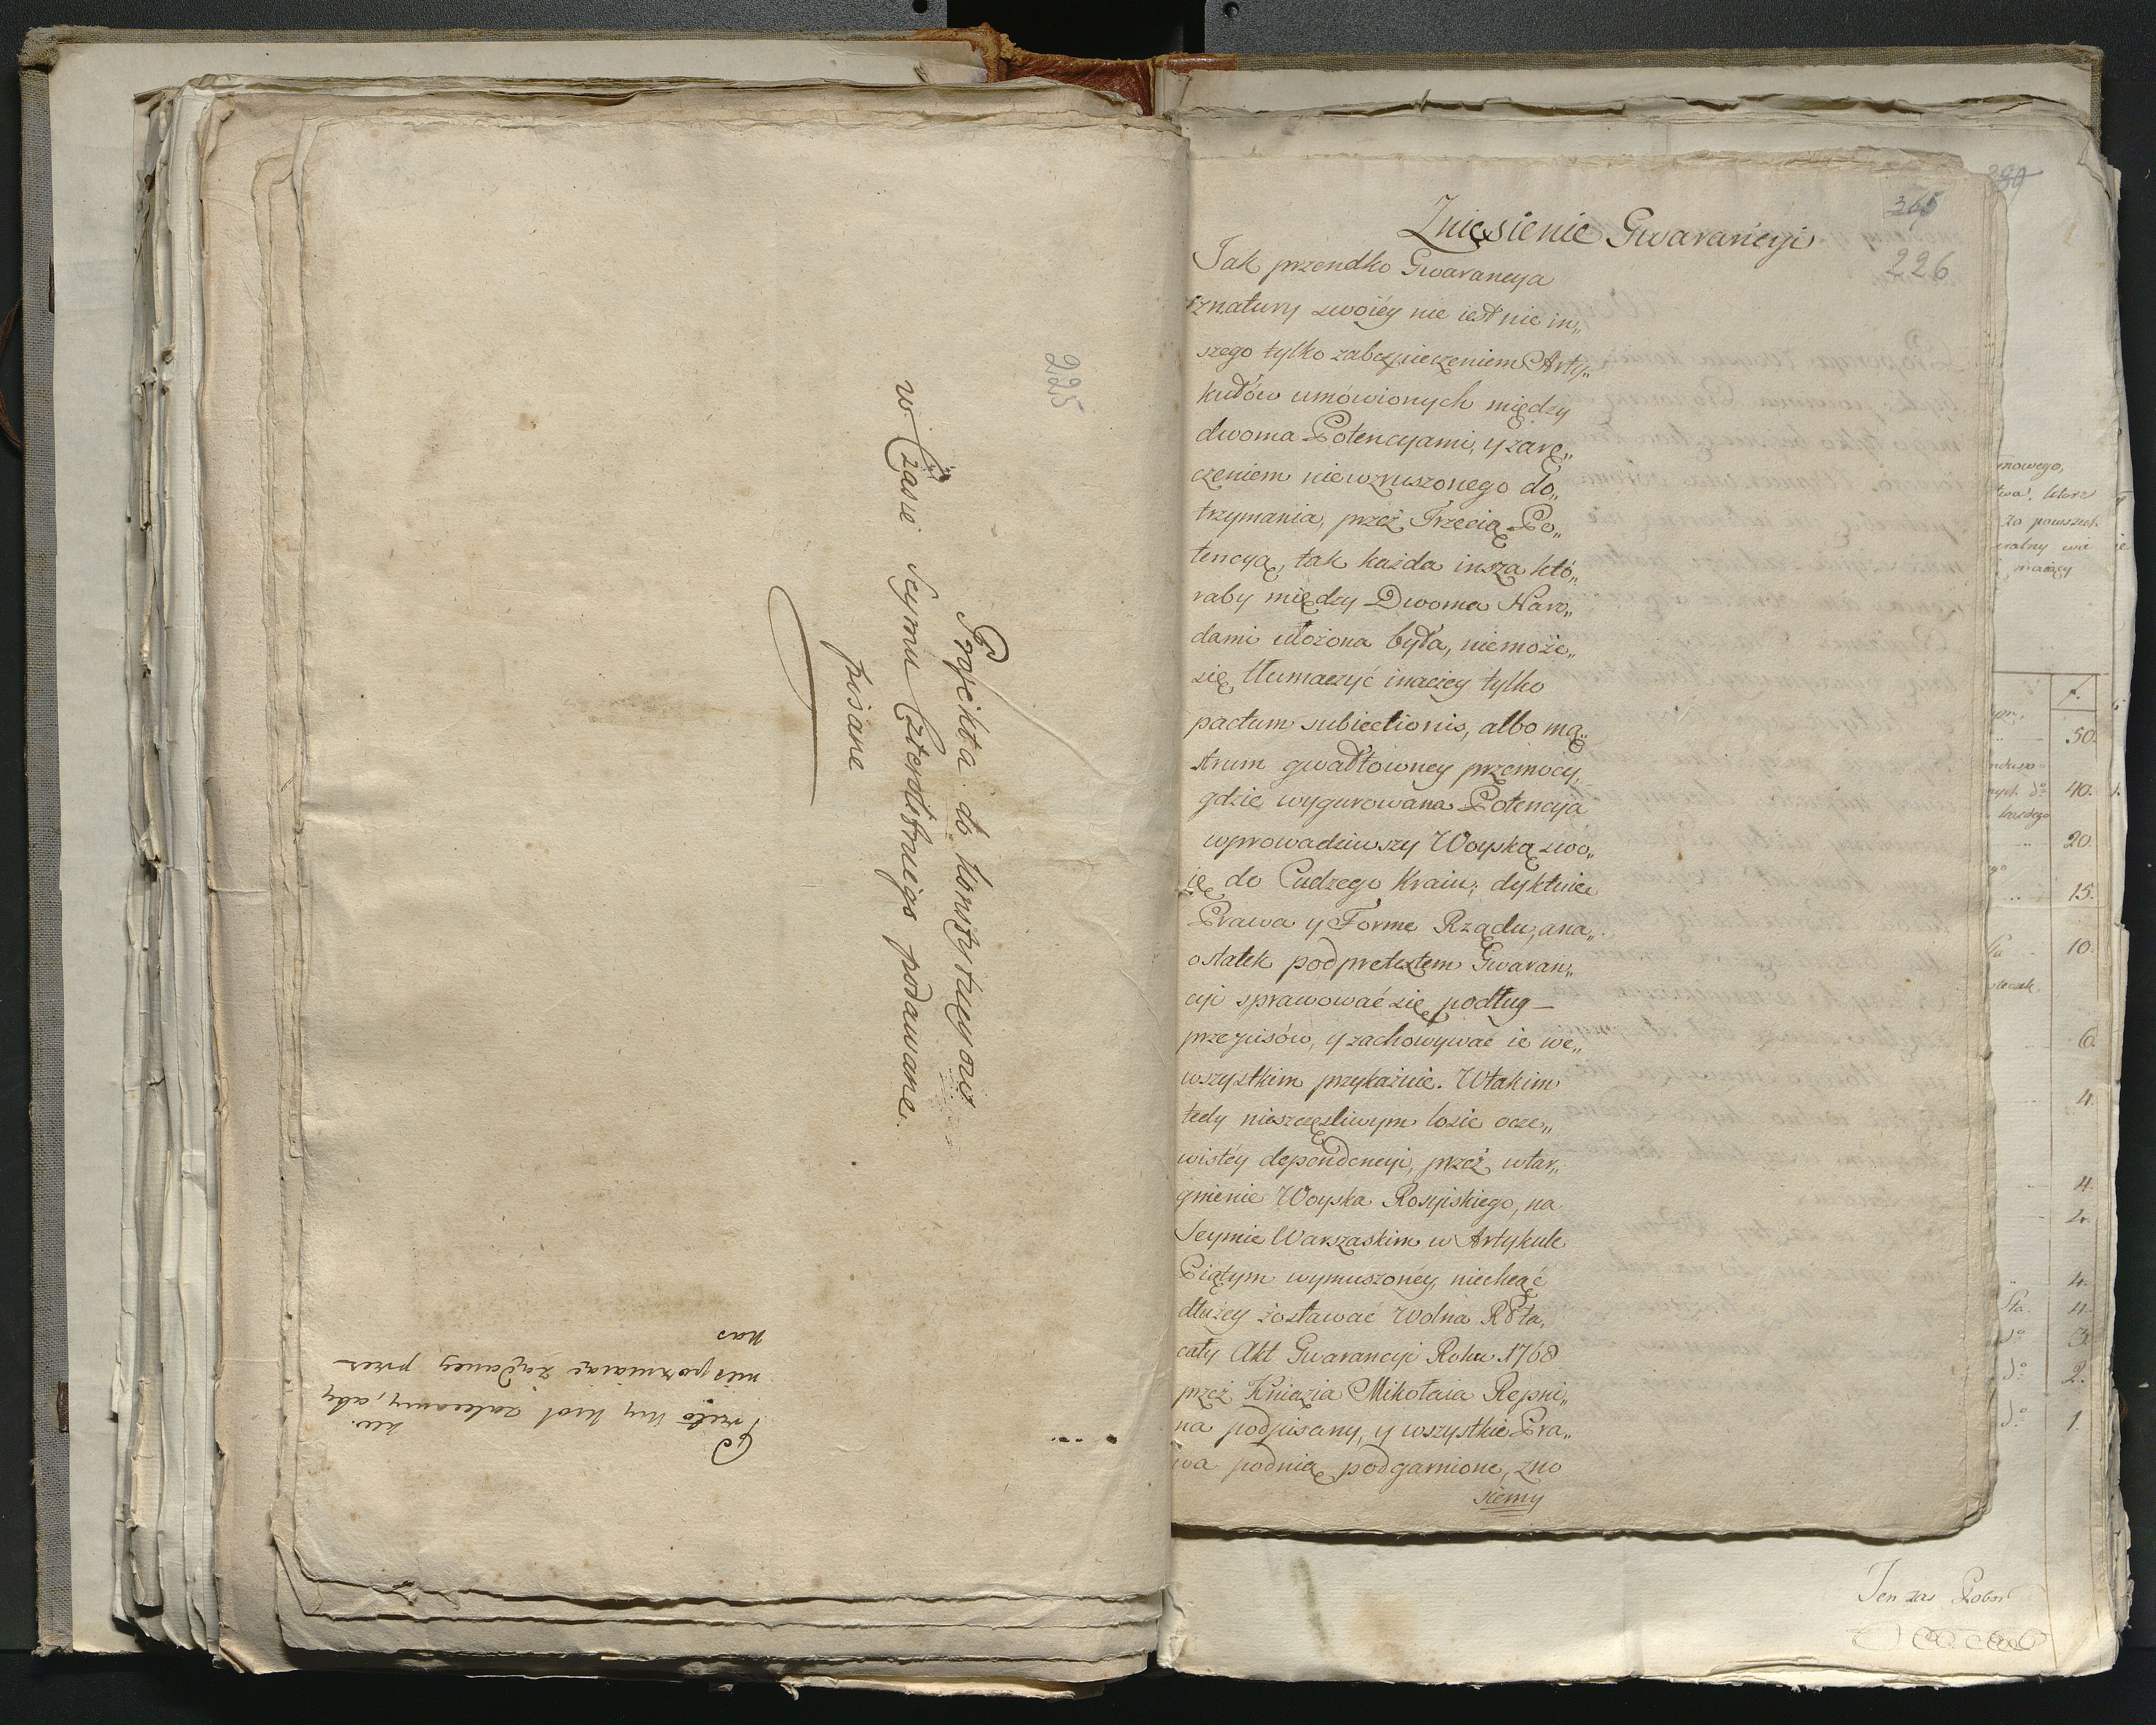 225
Projekta do konstytucyow
w Czasie Seymu Czteroletniego podawane.
pisane
Przeto my krol zalecamy, aby
nas
389
365
226
Zniesienie Gwarancyi
Jak przendko Gwarancya
znatury swoiéy nie iest nie in„
szego tylko zabezpieczeniem Arty„
kułów umówionych między
dwoma Potencyami, y zarę„
czeniem niewzruszonego do„
trzymania, przez Trzecią Po„
tencyą, tak każda insza któ„
raby między Dwoma Naro„
dami ułożona była, niemoże„
się tłumaczyć inaczey tylko
pactum subiectionis, albo mą„
strum gwałtowney przemocy,
gdzie wygurowana Potencyja
wprowadziwszy Woyska swo„
ię do Cudzego Kraiu; dyktuie
Prawa y Forme Rządu, ana„
ostatek podpretextem Gwaran„
cyi sprawować się podług —
przepisów, y zachowywać ie we„
wszystkim przykazuie. Wtakim
tedy nieszczęsliwym losie ocze„
wistéy dependencyi, przez wtar„
gnienie Woyska Rosyiskiego, na
Seymie Warszaskim w Artykule
Piątym wymuszonéy, niechcąć
dłużey zostawać Wolna RPta,
cały Akt Gwarancyi Roku 1768
przez Kniazia Mikołaia Repni„
na podpisany, y wszystkie Pra„
wa podnią podgarnione, zno
siemy
mowego,
które
za powszech
maiący
f.
50.
40.
każdego
20.
15.
10.
6.
4.
4.
2.
4.
4.
3.
2.
1.
Ten zas